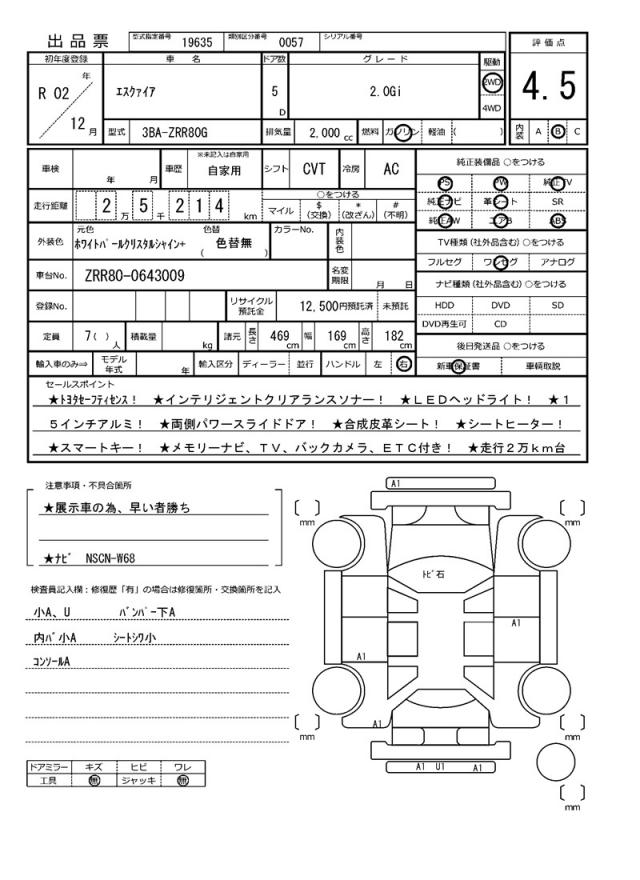 出品票 型式指定番号 19635 類別区分番号 0057 シリアル番号
評価点
4.5
内装 A B C
初年度登録 車名 ドア数 グレード 駆動
R 02 年 12 月 エスクァイア 5 D 2.0Gi 2WD 4WD
型式 3BA-ZRR80G 排気量 2,000 cc 燃料 ガソリン 軽油 ( )
車検 年 月 車歴 ※未記入は自家用 自家用 シフト CVT 冷房 AC
走行距離 2 万 5 千 2 1 4 km ○をつける マイル $ (交換) * (改ざん) # (不明)
外装色 元色 ホワイトパールクリスタルシャイン+ 色替 ( 色替無 ) カラーNo. 内装色
車台No. ZRR80-0643009 名変期限 月 日
登録No. リサイクル預託金 12,500円預託済 未預託
定員 7( )人 積載量 kg 諸元 長さ 469 cm 幅 169 cm 高さ 182 cm
輸入車のみ⇒ モデル年式 年 輸入区分 ディーラー 並行 ハンドル 左 右
純正装備品 ○をつける
PS PW 純正TV
純正ナビ 革シート SR
純正AW エアB ABS
TV種類 (社外品含む) ○をつける
フルセグ ワンセグ アナログ
ナビ種類 (社外品含む) ○をつける
HDD DVD SD
DVD再生可 CD
後日発送品 ○をつける
新車保証書 車輌取説
セールスポイント
★トヨタセーフティセンス! ★インテリジェントクリアランスソナー! ★LEDヘッドライト! ★1
5インチアルミ! ★両側パワースライドドア! ★合成皮革シート! ★シートヒーター!
★スマートキー! ★メモリーナビ、TV、バックカメラ、ETC付き! ★走行2万km台
注意事項・不具合箇所
★展示車の為、早い者勝ち
★ナビ NSCN-W68
検査員記入欄:修復歴「有」の場合は修復箇所・交換箇所を記入
小A、U バンパー下A
内バ小A シートシワ小
コンソールA
ドアミラー キズ ヒビ ワレ
工具 無 ジャッキ 無
A1
[ ] mm [ ] mm
トビ石
A1
A1
A1
[ ] mm [ ] mm
A1 U1 A1
[ ] mm